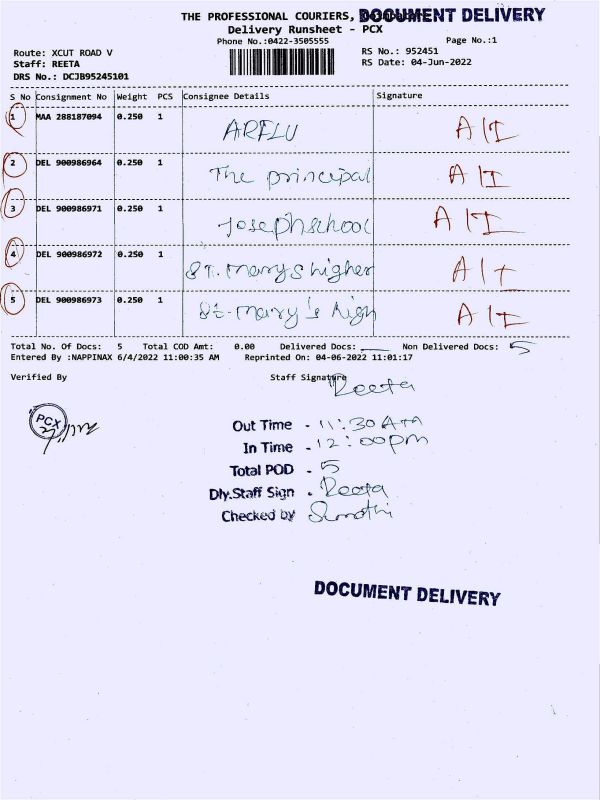 THE PROFESSIONAL COURIERS,
DOCUMENT DELIVERY
Delivery Runsheet - PCX
Phone No.:0422-3505555
Page No.:1
Route: XCUT ROAD V
RS No.: 952451
Staff: REETA
RS Date: 04-Jun-2022
DRS No.: DCJB95245101
S No Consignment No Weight PCS Consignee Details Signature
1 MAA 288187094 0.250 1 ARFLU A/I
2 DEL 900986964 0.250 1 The principal A/I
3 DEL 900986971 0.250 1 Joseph school A/I
4 DEL 900986972 0.250 1 ST. marys higher A/I
5 DEL 900986973 0.250 1 St. mary's high A/I
Total No. Of Docs: 5 Total COD Amt: 0.00 Delivered Docs: Non Delivered Docs: 5
Entered By :NAPPINAX 6/4/2022 11:00:35 AM Reprinted On: 04-06-2022 11:01:17
Verified By Staff Signature
Reeta
PCX
Out Time - 11:30 Am
In Time - 12:00pm
Total POD - 5
Dly.Staff Sign . Reeta
Checked by Sumathi
DOCUMENT DELIVERY